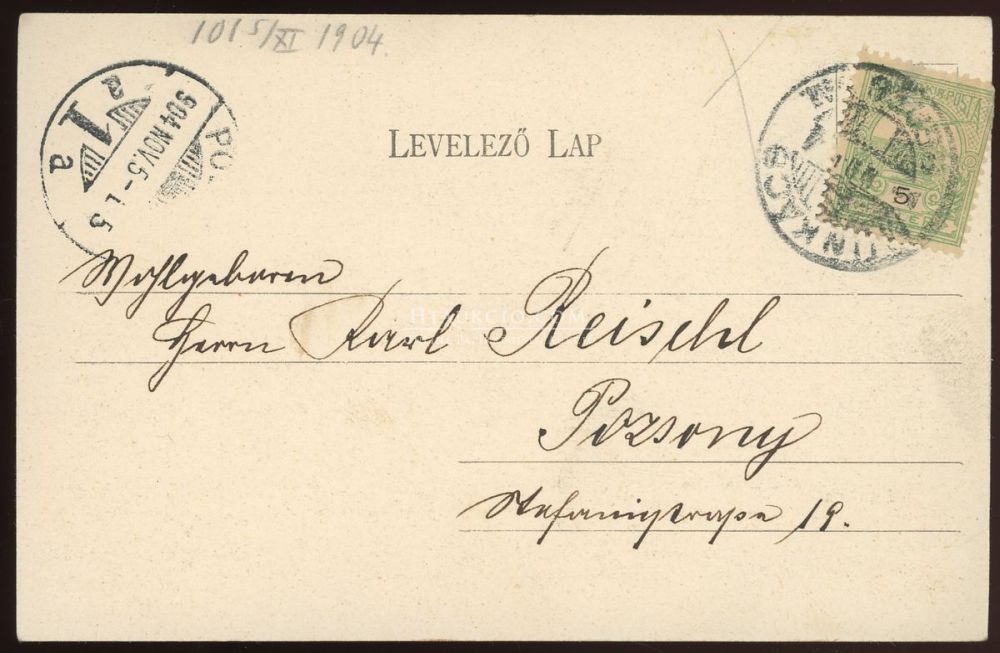 1015/XI 1904.
904 NOV. 5 - L 5
1
a
a
PO
LEVELEZŐ LAP
MUNKÁCS
POSTA
5
Wohlgeboren
Herrn Karl Reischl
Pozsony
Stefaniestraße 19.